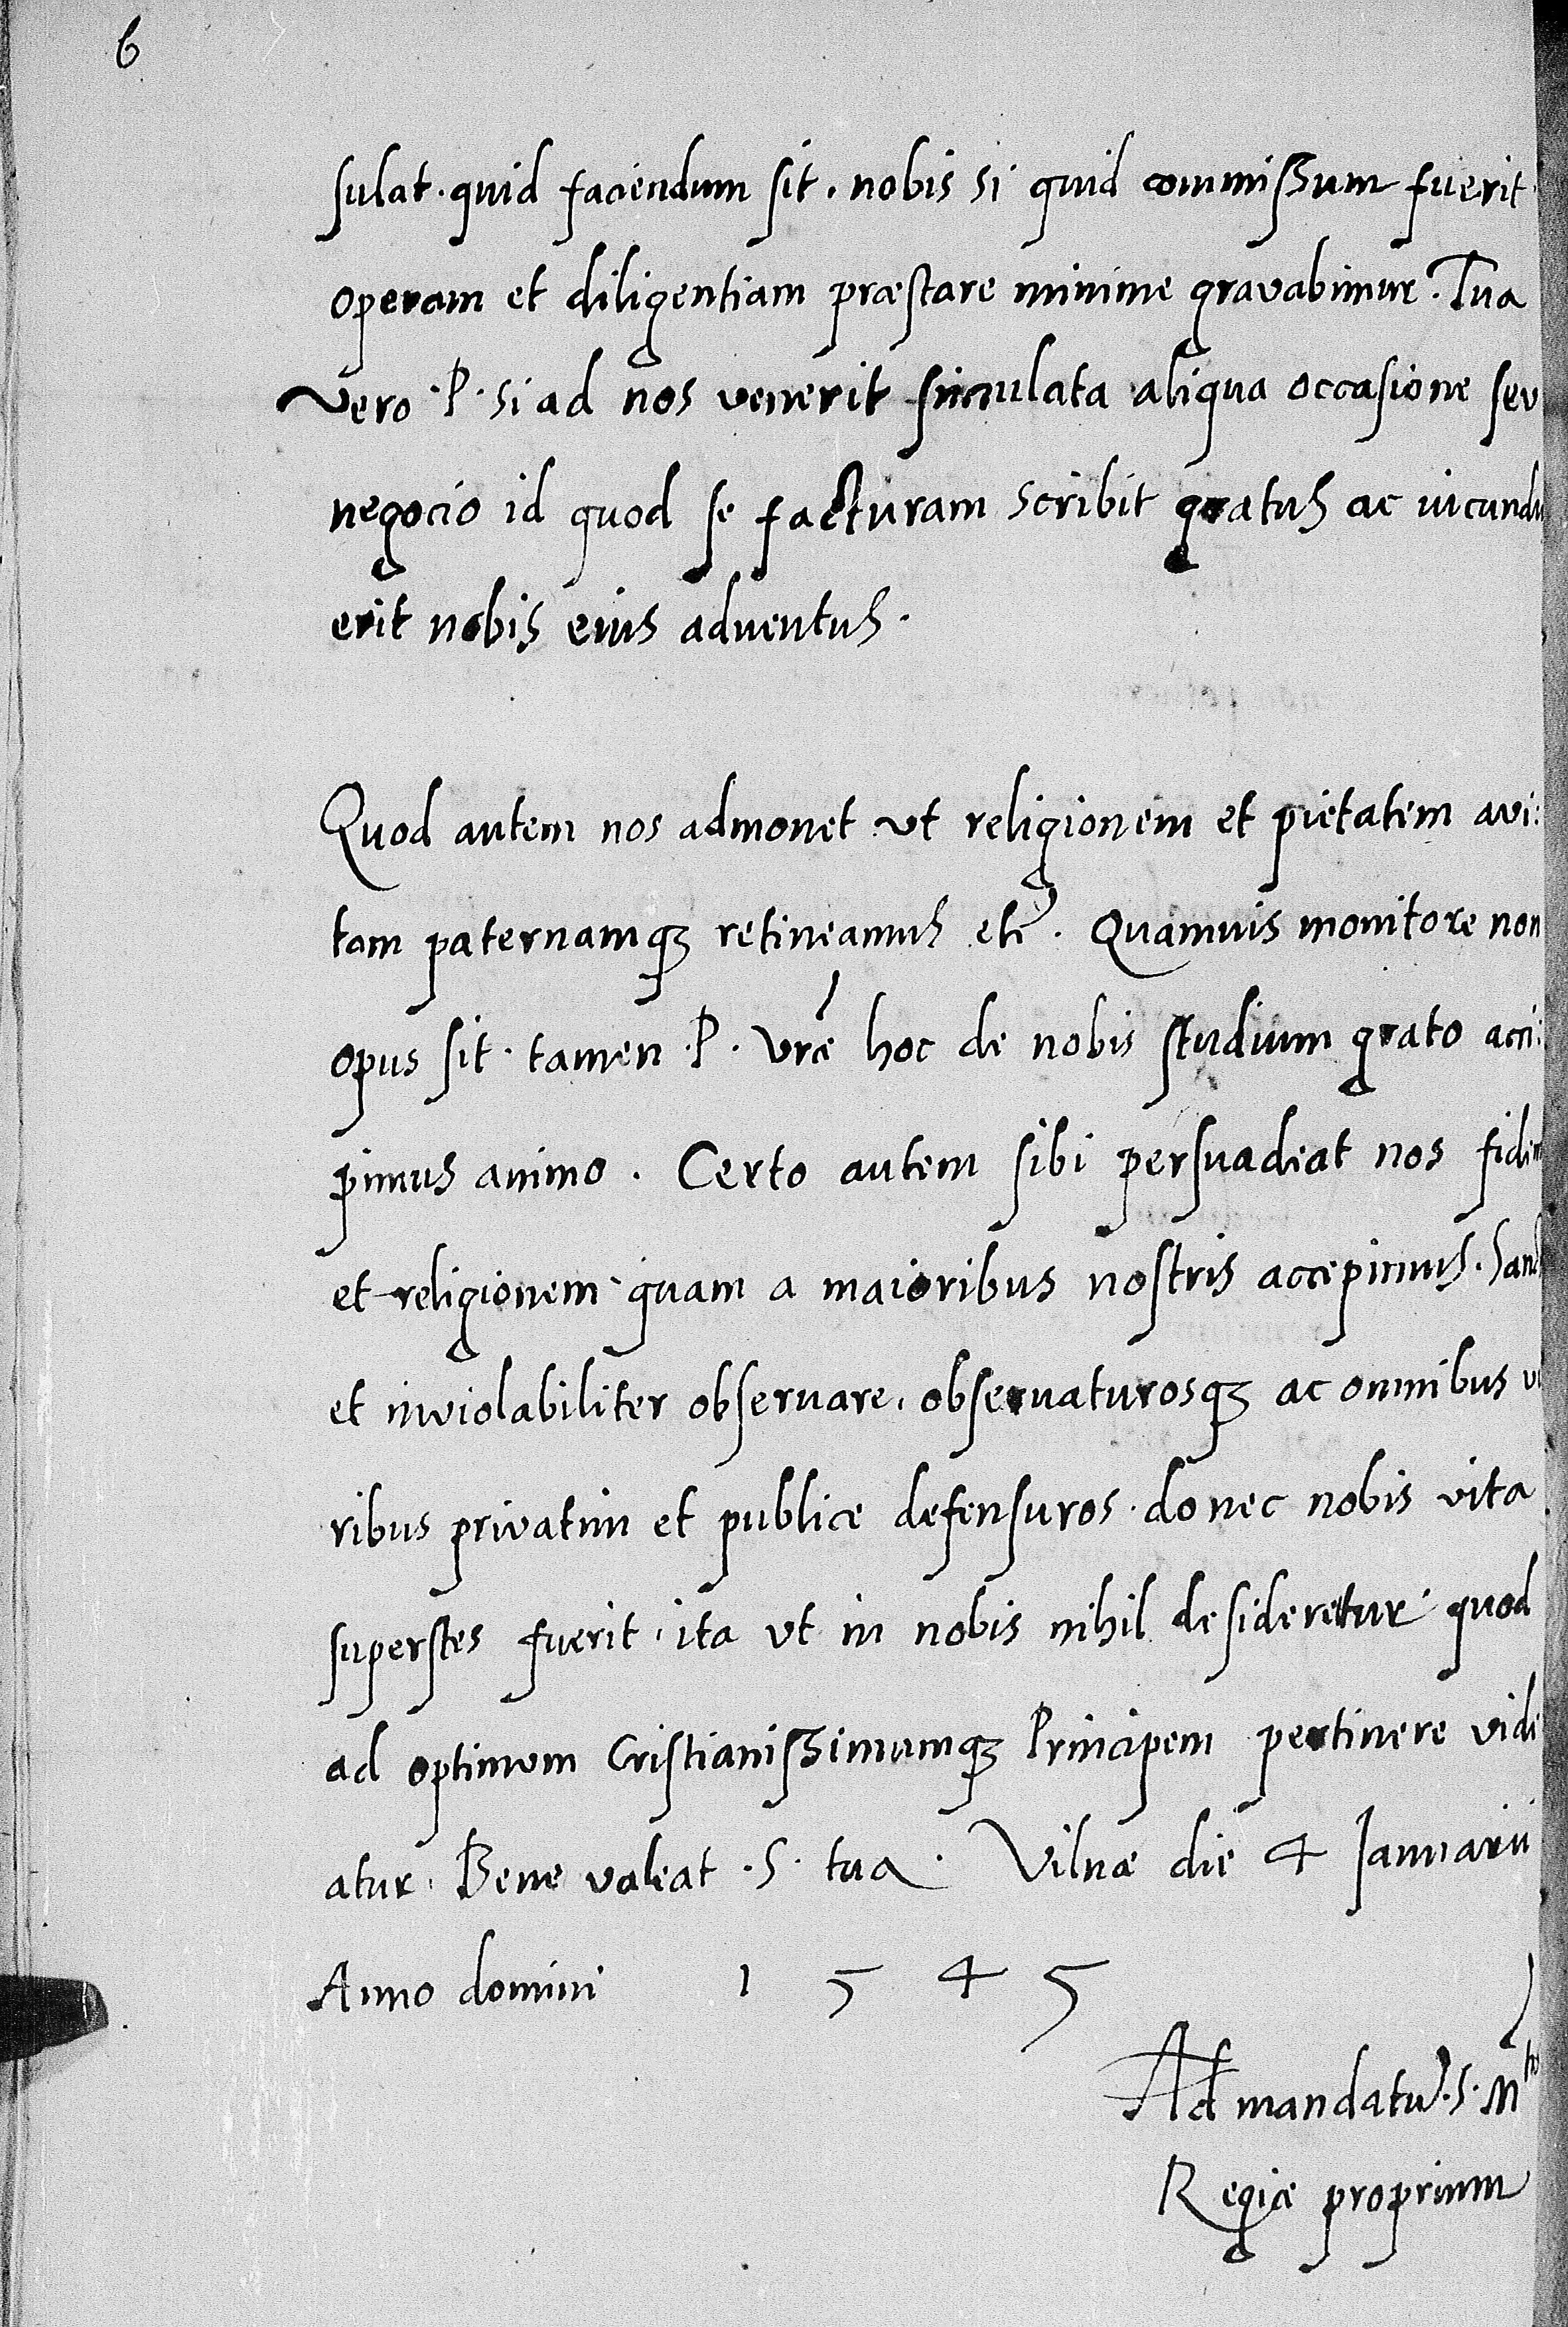 6
sulat. quid faciendum sit. nobis si quid commissum fuerit
operam et diligentiam præstare minime gravabimur. Tua
vero .P. si ad nos venerit simulata aliqua occasione seu
negocio id quod se facturam scribit gratus ac iucundu
erit nobis eius adventus.
Quod autem nos admonet ut religionem et pietatem avi:
tam paternamqꝫ retineamus etc. Quamvis monitore non
opus sit. tamen .P. vræ hoc de nobis studium grato acci:
pimus animo. Certo autem sibi persuadeat nos fidem
et religionem quam a maioribus nostris accepimus. Sanct
et inviolabiliter observare, observaturosqꝫ ac omnibus vi
ribus privatim et publice defensuros. donec nobis vita
superstes fuerit, ita ut in nobis nihil desideretur quod
ad optimum Cristianissimumqꝫ Principem pertinere vide
atur. Bene valeat .S. tua. Vilnæ die 4 Januarii
Anno domini 1545
Ad mandatū .S. Mtis
Regiæ proprium